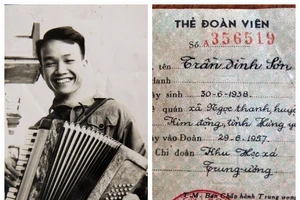 THẺ ĐOÀN VIÊN
Số A356519
tên Trần đình Sơn
danh
sinh 30-6-1938
quán xã Ngọc thanh, huyện
Kim động, tỉnh Hưng yên
vào Đoàn 29-6-1957
Chi đoàn Khu Học xá
Trung-ương
T.M. Ban Chấp hành Trung ương